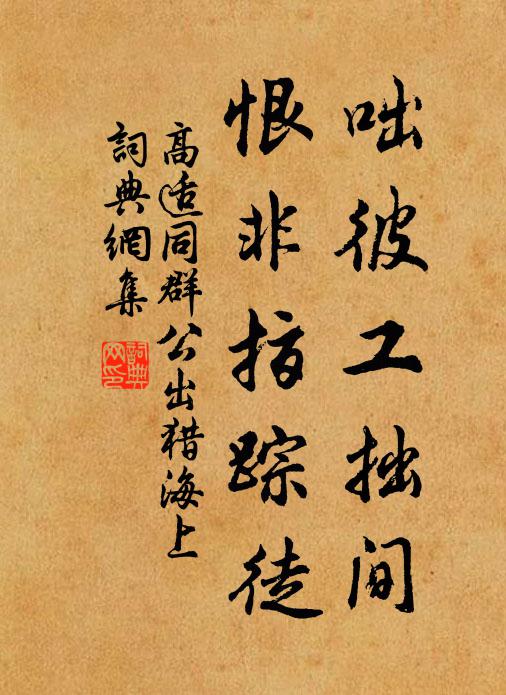 咄彼工拙间
恨非指踪徒
高适同群公出猎海上
詞典網集
詞典
网印